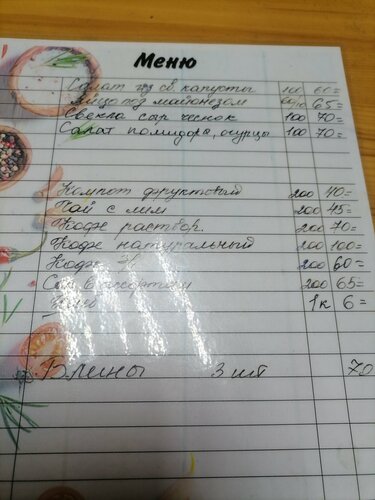 Меню
Салат из св. капусты 100 60=
Яйцо под майонезом 65=
Свекла сыр чеснок 100 70=
Салат помидора, огурцы 100 70=
Компот фруктовый 200 40=
Чай с лим 200 45=
Кофе раствор. 200 70=
Кофе натуральный 200 100=
Кофе 200 60=
Сок в ассортим 200 65=
Хлеб 1к 6=
Блины 3 шт 70